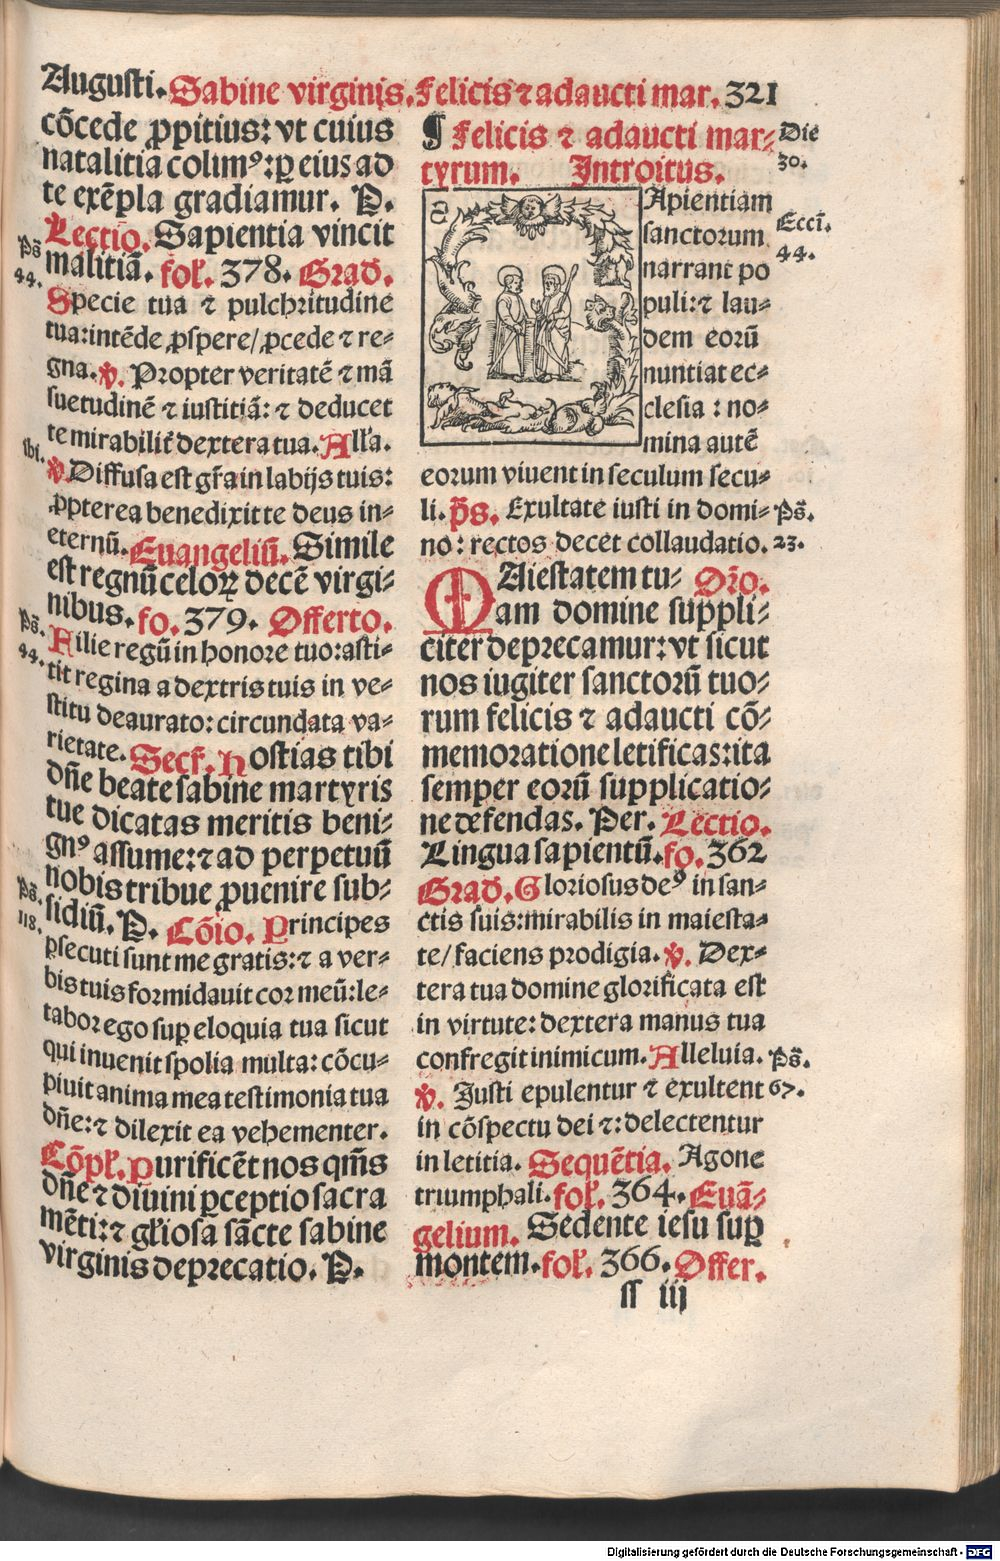 Augusti. Sabine virginis. Felicis ⁊ adaucti mar. 321
cōcede ꝓpitius: vt cuius
natalitia colimꝰ: ꝑ eius ad
te exēpla gradiamur. P.
Lectio. Sapientia vincit
malitiā. fol. 378. Grad.
Ps̄
44.
Specie tua ⁊ pulchritudine
tua: intēde ꝓspere/ ꝓcede ⁊ re⸗
gna. ℣. Propter veritatē ⁊ mā
suetudinē ⁊ iustitiā: ⁊ deducet
te mirabilit̄ dextera tua. Alľa.
Ibi.
℣. Diffusa est gr̄a in labijs tuis:
ꝓpterea benedixit te deus in⸗
eternū. Euangeliū. Simile
est regnū celoꝝ decē virgi⸗
nibus. fo. 379. Offerto.
Ps̄.
44.
Filie regū in honore tuo: asti⸗
tit regina a dextris tuis in ve⸗
stitu deaurato: circundata va⸗
rietate. Secr̄. Hostias tibi
dn̄e beate sabine martyris
tue dicatas meritis beni⸗
gnꝰ assume: ⁊ ad perpetuū
nobis tribue ꝓuenire sub⸗
sidiū. P. Cōio. Principes
Ps̄.
118.
ꝑsecuti sunt me gratis: ⁊ a ver⸗
bis tuis formidauit cor meū: le⸗
tabor ego suꝑ eloquia tua sicut
qui inuenit spolia multa: cōcu⸗
piuit anima mea testimonia tua
dn̄e: ⁊ dilexit ea vehementer.
Cōpľ. Purificēt nos qm̄s
dn̄e ⁊ diuini ꝑceptio sacra
mēti: ⁊ gľiosa sācte sabine
virginis deprecatio. P.
¶ Felicis ⁊ adaucti mar⸗
tyrum. Introitus.
Die
30.
Apientiam
sanctorum
narrant po
puli: ⁊ lau⸗
dem eorū
nuntiat ec⸗
clesia: no⸗
mina autē
Ecci.
44.
eorum viuent in seculum secu⸗
li. p̄s. Exultate iusti in domi⸗
no: rectos decet collaudatio.
Ps̄.
23.
MAiestatem tu⸗ Or̄o.
am domine suppli⸗
citer deprecamur: vt sicut
nos iugiter sanctorū tuo⸗
rum felicis ⁊ adaucti cō⸗
memoratione letificas: ita
semper eorū supplicatio⸗
ne defendas. Per. Lectio.
Lingua sapientū. fo. 362
Grad. Gloriosus deꝰ in san⸗
ctis suis: mirabilis in maiesta⸗
te/ faciens prodigia. ℣. Dex⸗
tera tua domine glorificata est
in virtute: dextera manus tua
confregit inimicum. Alleluia.
Ps̄.
67.
℣. Justi epulentur ⁊ exultent
in cōspectu dei ⁊: delectentur
in letitia. Sequētia. Agone
triumphali. foľ. 364. Euā⸗
gelium. Sedente iesu suꝑ
montem. foľ. 366. Offer.
ss iij
Digitalisierung gefördert durch die Deutsche Forschungsgemeinschaft - DFG